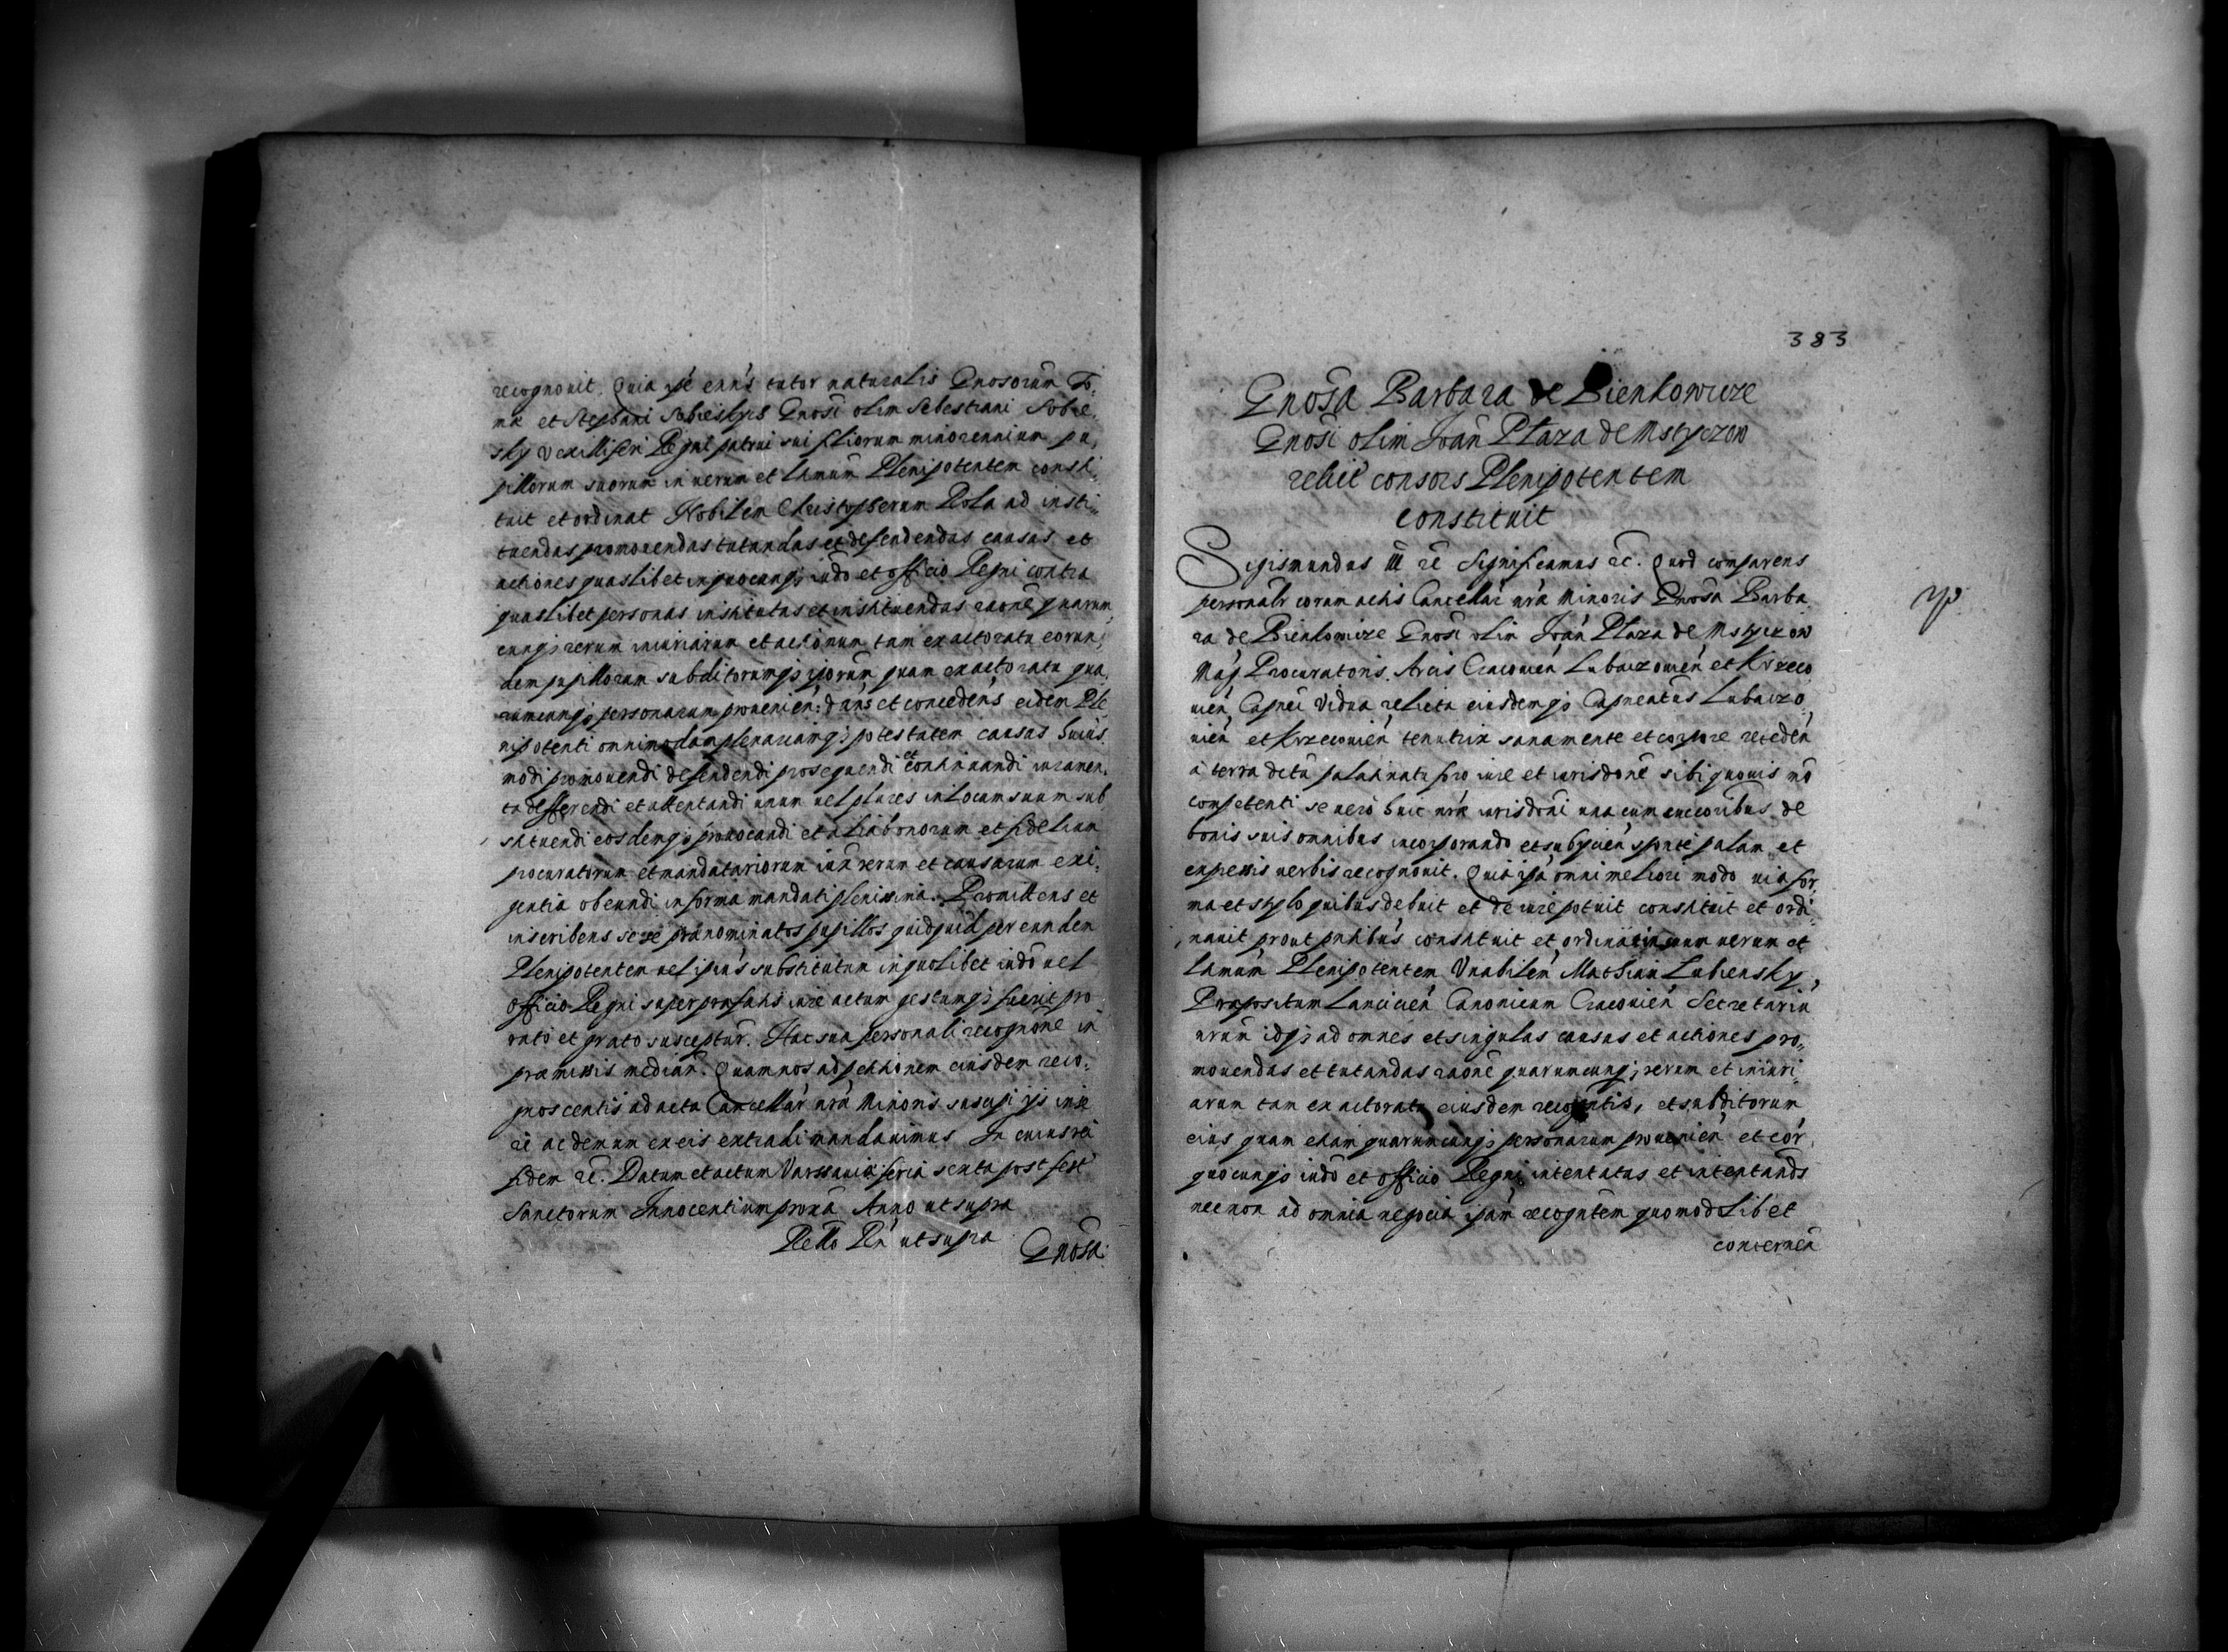 recognouit. Quia ipse eññs tutor naturalis Gnosorum To„
mæ et Stephani Sobieskys Gnosi olim Sebestiani Sobie„
sky Vexilliferi Regni patrui sui filiorum minorennium pu„
pillorum suorum in uerum et lamum Plenipotentem consti„
tuit et ordinat Nobilem Christopherum Rola ad insti„
tuendas promouendas tutandas et defendendas causas et
actiones quaslibet in quocunq; iudo et officio Regni contra
quaslibet personas institutas et instituendas raone quarum„
cunq; rerum iniuriarum et actionum tam ex actoratu eorun„
dem pupillorum subditorumq; ipsorum quam ex actoratu qua„
rumcunq; personarum prouenień: dans et concedens eidem Ple
nipotenti omnimodam plenariamq; potestatem causas huius
modi promouendi defendendi prosequendi et continuandi iuramen„
ta defferendi et attentandi unum uel plures in locum suum sub
stituendi eosdemq; prouocandi et alia bonorum et fidelium
procuratorum et mandatariorum iuxa rerum et causarum exi„
gentia obeundi in forma mandati plenissima. Promittens et
inscribens se præ nominatos pupillos quidquid per eundem
Plenipotentem uel ipsius substitutum in quolibet iudo uel
officio Regni super præfatis iure actum gestumq; fuerit pro
rato et grato susceptur. Hac sua personali recognone in
præmissis median. Quam nos ad petitionem eiusdem reco„
gnoscentis ad acta Cancellar nra Minoris suscipi ijs inse
ri ac demum ex eis extradi mandauimus. In cuius rei
fidem &c. Datum et actum Varssauiæ feria sexta post fest
Sanctorum Innocentium proxa Anno ut supra
Rello Rn ut supra
Gnosa
383
Gnosa Barbara de Bienkowice
Gnosi olim Joan Płaza de Mstyczow
relict consors Plenipotentem
constituit
Sigismundus III &c Significamus &c. Quod comparens
personalr coram actis Cancellar nra Minoris Gnosa Barba
ra de Bienkowice Gnosi olim Joan Płaza de Mstyczow
Mag. Procuratoris Arcis Cracouień Lubaczouień et Krzeczo
uień Capnei Vidua relicta eiusdemq; Capneatus Lubaczo„
uień et Krzeczouień tenutrix sana mente et corpore receden
a terra detu palatinatu foro iure et iurisdone sibi quouis mo
competenti se uero huic nræ iurisdoni una cum succoribus de
bonis suis omnibus incorporando et subycien sponte palam et
expressis uerbis recognouit. Quia ipsa omni meliori modo uia for„
ma et stylo quibus debuit et de iure potuit constituit et ordi„
nauit prout pntibus constituit et ordinat in suum uerum et
lamum Plenipotentem Vnabilem Mathiam Lubiensky,
Præpositum Lancicień Canonicum Cracouień Secretariu
nrum idq; ad omnes et singulas causas et actiones pro„
mouendas et tutandas raone quarumcunq; rerum et iniuri„
arum tam ex actoratu eiusdem recogntis, et subditorum
eius quam etiam quarumcunq; personarum prouenień et cor
quocunq; iudo et officio Regni intentatas et intentands
nec non ad omnia negocia ipsam recogntem quomodolibet
concernen